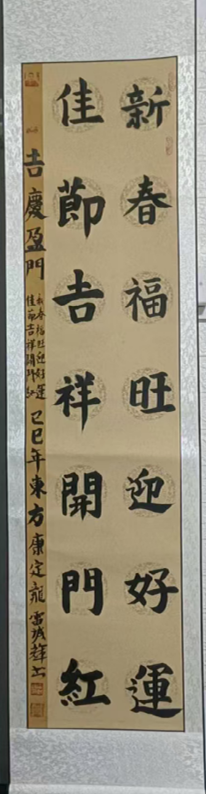 新春福旺迎好運
佳節吉祥開門紅
吉慶盈門
新春福旺迎好運
佳節吉祥開門紅
乙巳年東方康定龍